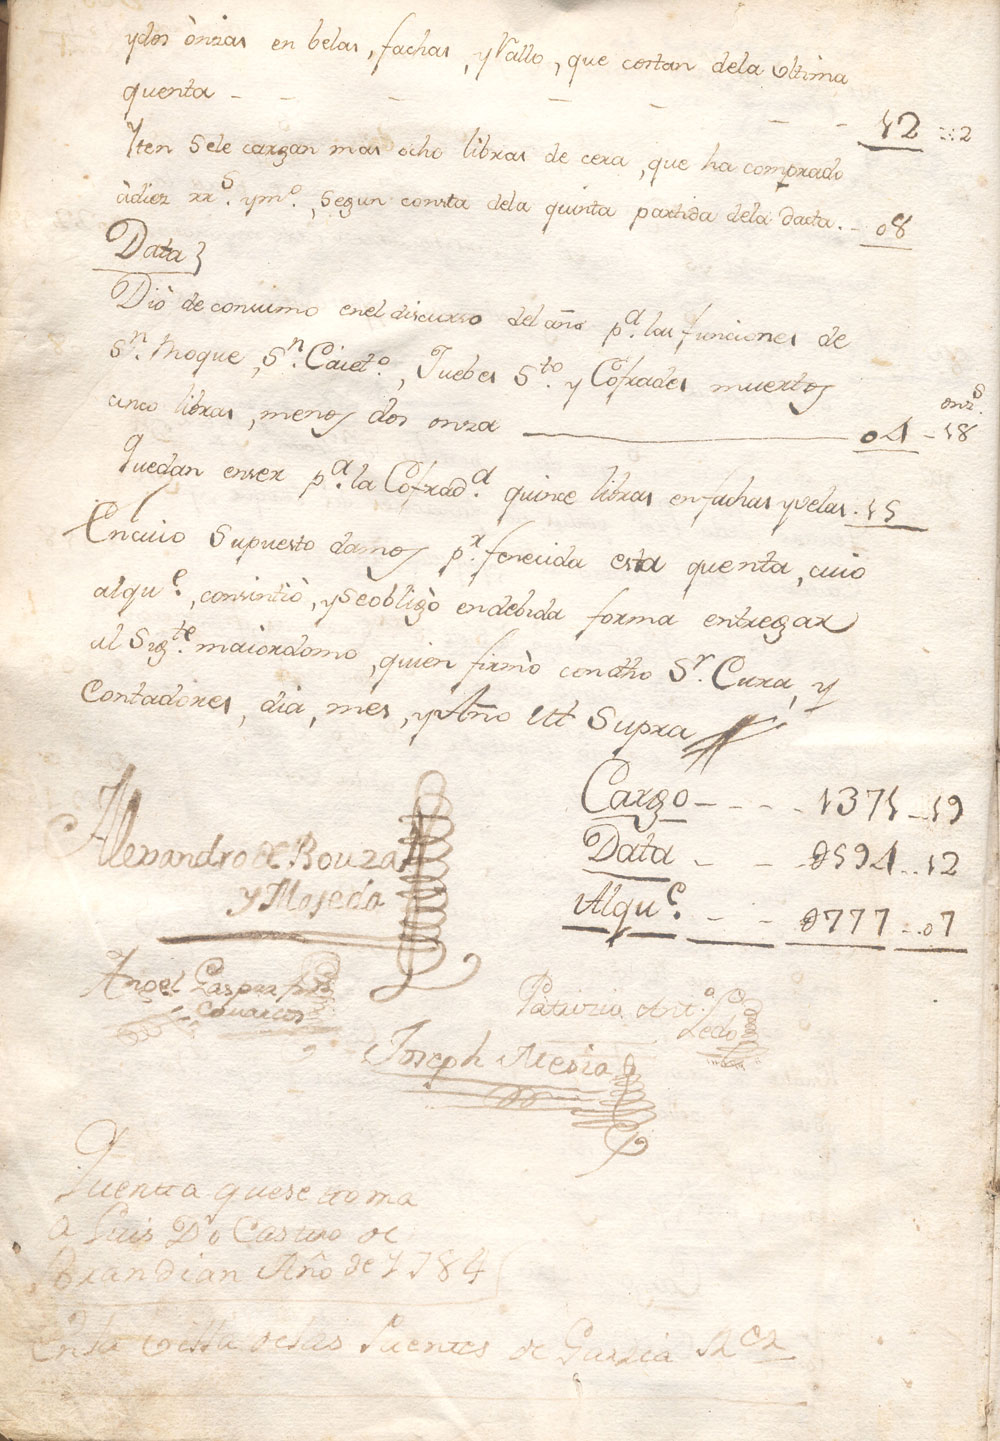 y dos onzas en belas, fachas, y Vallo, que costan dela ultima
quenta - - - - - - - 12 -:-2
Iten Sele cargan mas ocho libras de cera, que ha comprado
à diez rr.s y m.o, Segun consta dela quinta partida dela data. - 08
Data}
Diò de consumo enel discurso del año p.a las funciones de
S.n Roque, S.n Caiet.o, Juebes S.to y Cofrades muertos
onz.s
cinco libras, menos dos onza ——— 04 - 18
Quedan enser p.a la Cofrad.a quince libras en fachas y velas. 15
En cuio Supuesto damos p.r fenecida esta quenta, cuio
alqu.e, consintiò, y Seobligò en debida forma entregar
al Sig.te maiordomo, quien firmò con dho S.r Cura, y
Contadores, dia, mes, y Año Ut Supra
Cargo - - - - 1371 - 19
Data - - - 0594 - 12
Alqu.e - - 0777 - 07
Alexandro de Bouza
y Maseda
Angel Gaspar
Patrizio Ant.o
Ledo
Joseph Mesia
Quenta que se toma
a Luis D.o Castro de
Brandian Año de 1784
En la Villa de las Puentes de Garzia Rz